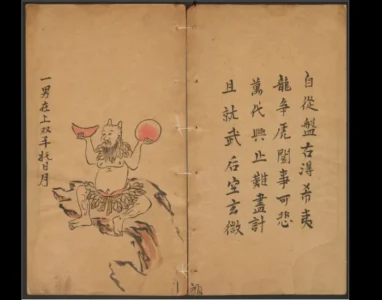 自從盤古淂希夷
龍爭虎鬪事可悲
萬代興亡難盡計
且就武后定玄微
一男在上双手托日月